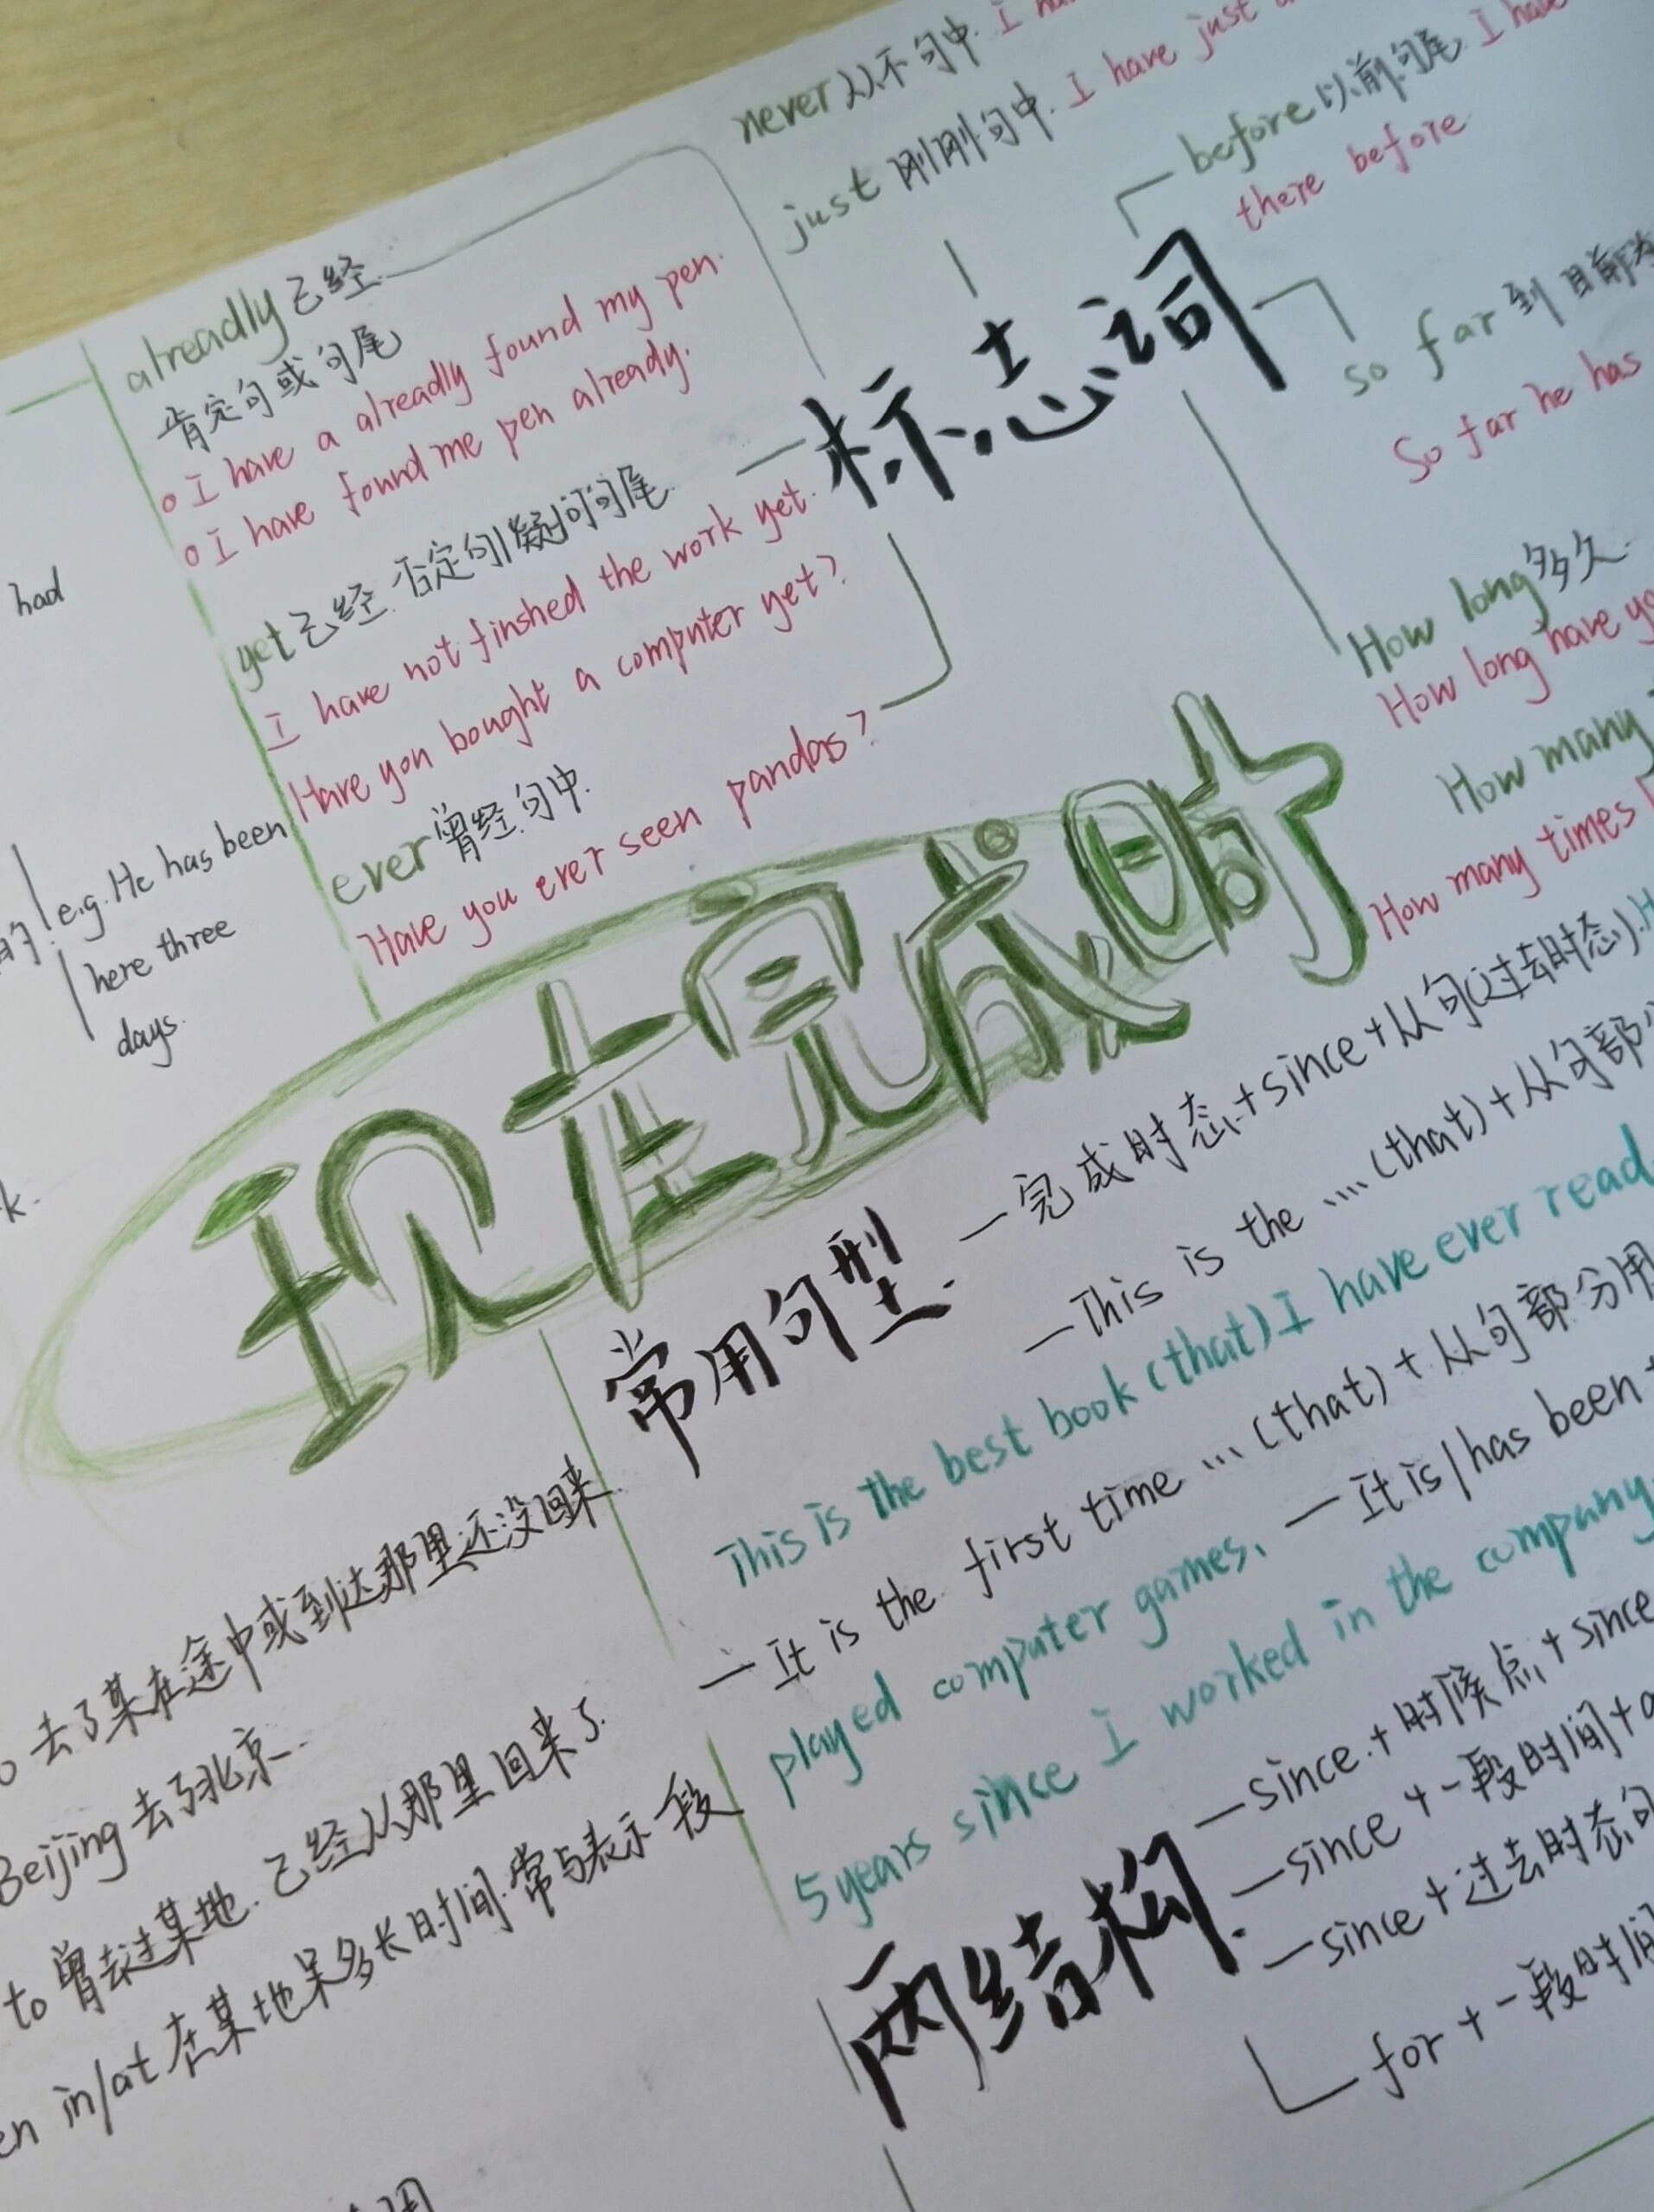 never 从不 句中. I ha
just 刚刚 句中. I have just
before 以前 句尾. I have
there before
alreadly 已经
肯定句或句尾
I have a alreadly found my pen.
I have found me pen already.
标志词
so far 到目前为
So far he has
yet 已经. 否定句/疑问句尾
I have not finshed the work yet.
Have you bought a computer yet?
ever 曾经. 句中.
Have you ever seen pandas?
How long 多久.
How long have yo
How many
How many times
had
的
e.g. He has been
here three
days.
k.
现在完成时
常用句型
完成时态 + since + 从句(过去时态). H
This is the .... (that) + 从句部
This is the best book (that) I have ever read
It is the first time ... (that) + 从句部分用
played computer games.
It is / has been +
5 years since I worked in the company.
o 去了某在途中或到达那里还没回来
Beijing 去了北京.
to 曾去过某地. 已经从那里回来了.
en in/at 在某地呆多长时间. 常与表示一段
两结构.
since + 时候点 + since
since + 一段时间 + a
since + 过去时态句
for + 一段时间
用